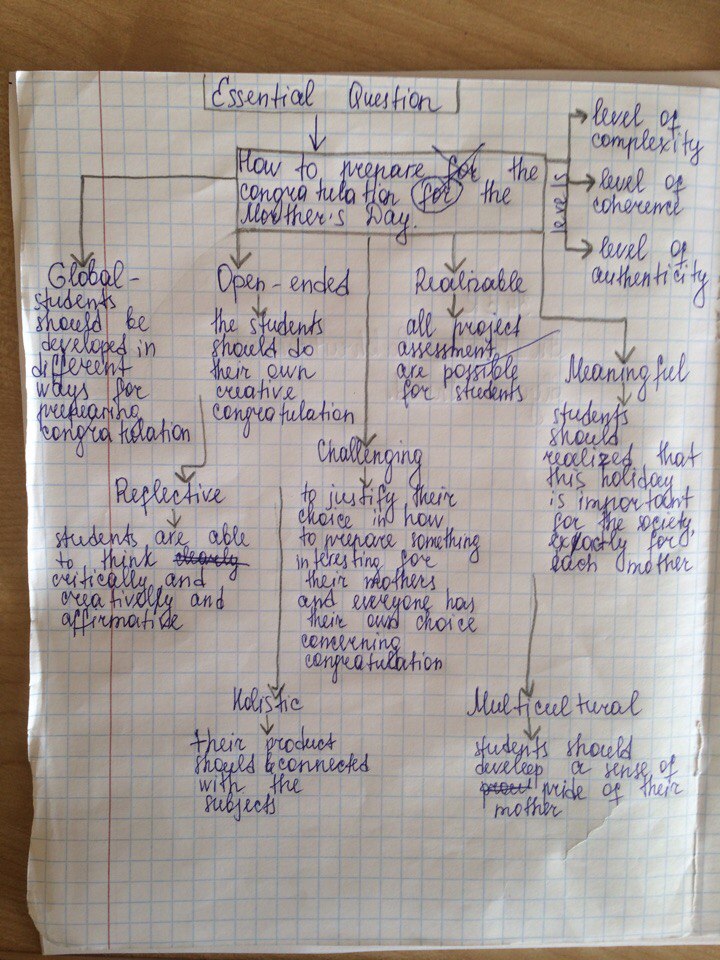 Essential Question
How to prepare for the
congratulation for the
Mother's Day.
levels
level of
complexity
level of
coherence
level of
authenticity
Global -
students
should be
developed in
different
ways for
prepearing
congratulation
Open-ended
the students
should do
their own
creative
congratulation
Realizable
all project
assessment
are possible
for students
Meaningful
students
should
realized that
this holiday
is important
for the society,
exactly for
each mother
Reflective
students are able
to think clearly
critically and
creativelly and
affirmative
Challenging
to justify their
choice in how
to prepare something
interesting for
their mothers
and everyone has
their own choice
concerning
congratulation
Holistic
their product
should be connected
with the
subjects
Multicultural
students should
develop a sense of
pride of their
mother